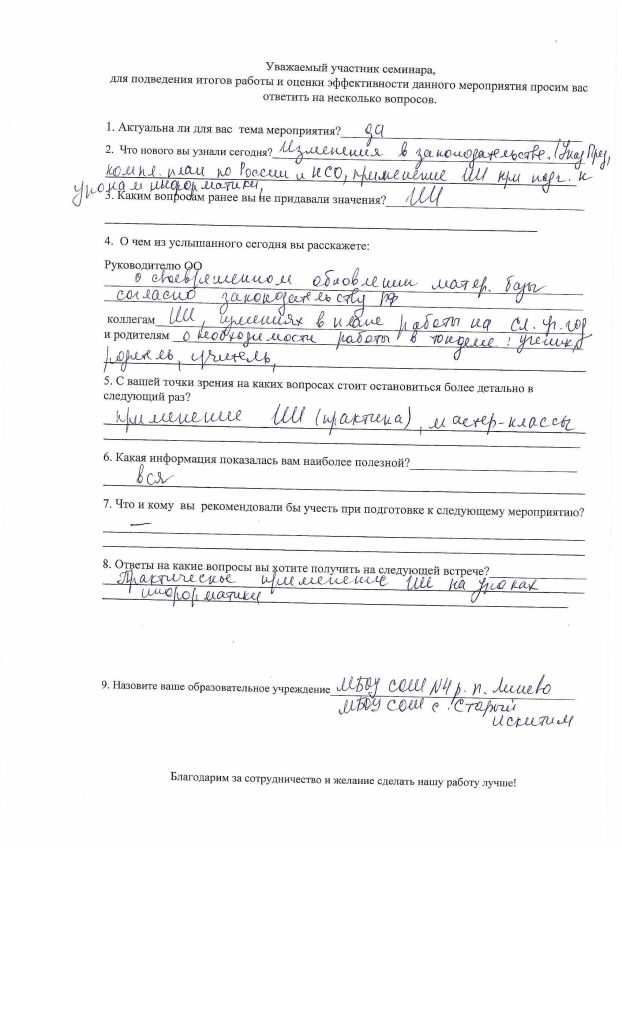 Уважаемый участник семинара,
для подведения итогов работы и оценки эффективности данного мероприятия просим вас
ответить на несколько вопросов.
1. Актуальна ли для вас тема мероприятия? да
2. Что нового вы узнали сегодня? Изменения в законодательстве. (Указ През,
компл. план по России и НСО, применение ИИ при подг. к
урокам информатики,
3. Каким вопросам ранее вы не придавали значения? ИИ
4. О чем из услышанного сегодня вы расскажете:
Руководителю ОО
о своевременном обновлении матер. базы
согласно законодательству РФ
коллегам ИИ, изменениях в плане работы на сл. уч. год
и родителям о необходимости работы в тандеме: ученик,
родитель, учитель,
5. С вашей точки зрения на каких вопросах стоит остановиться более детально в
следующий раз?
применение ИИ (практика), мастер-классы
6. Какая информация показалась вам наиболее полезной?
вся
7. Что и кому вы рекомендовали бы учесть при подготовке к следующему мероприятию?
—
8. Ответы на какие вопросы вы хотите получить на следующей встрече?
Практическое применение ИИ на уроках
информатики
9. Назовите ваше образовательное учреждение МБОУ СОШ №4 р. п. Линево
МБОУ СОШ с. Старый
Искитим
Благодарим за сотрудничество и желание сделать нашу работу лучше!